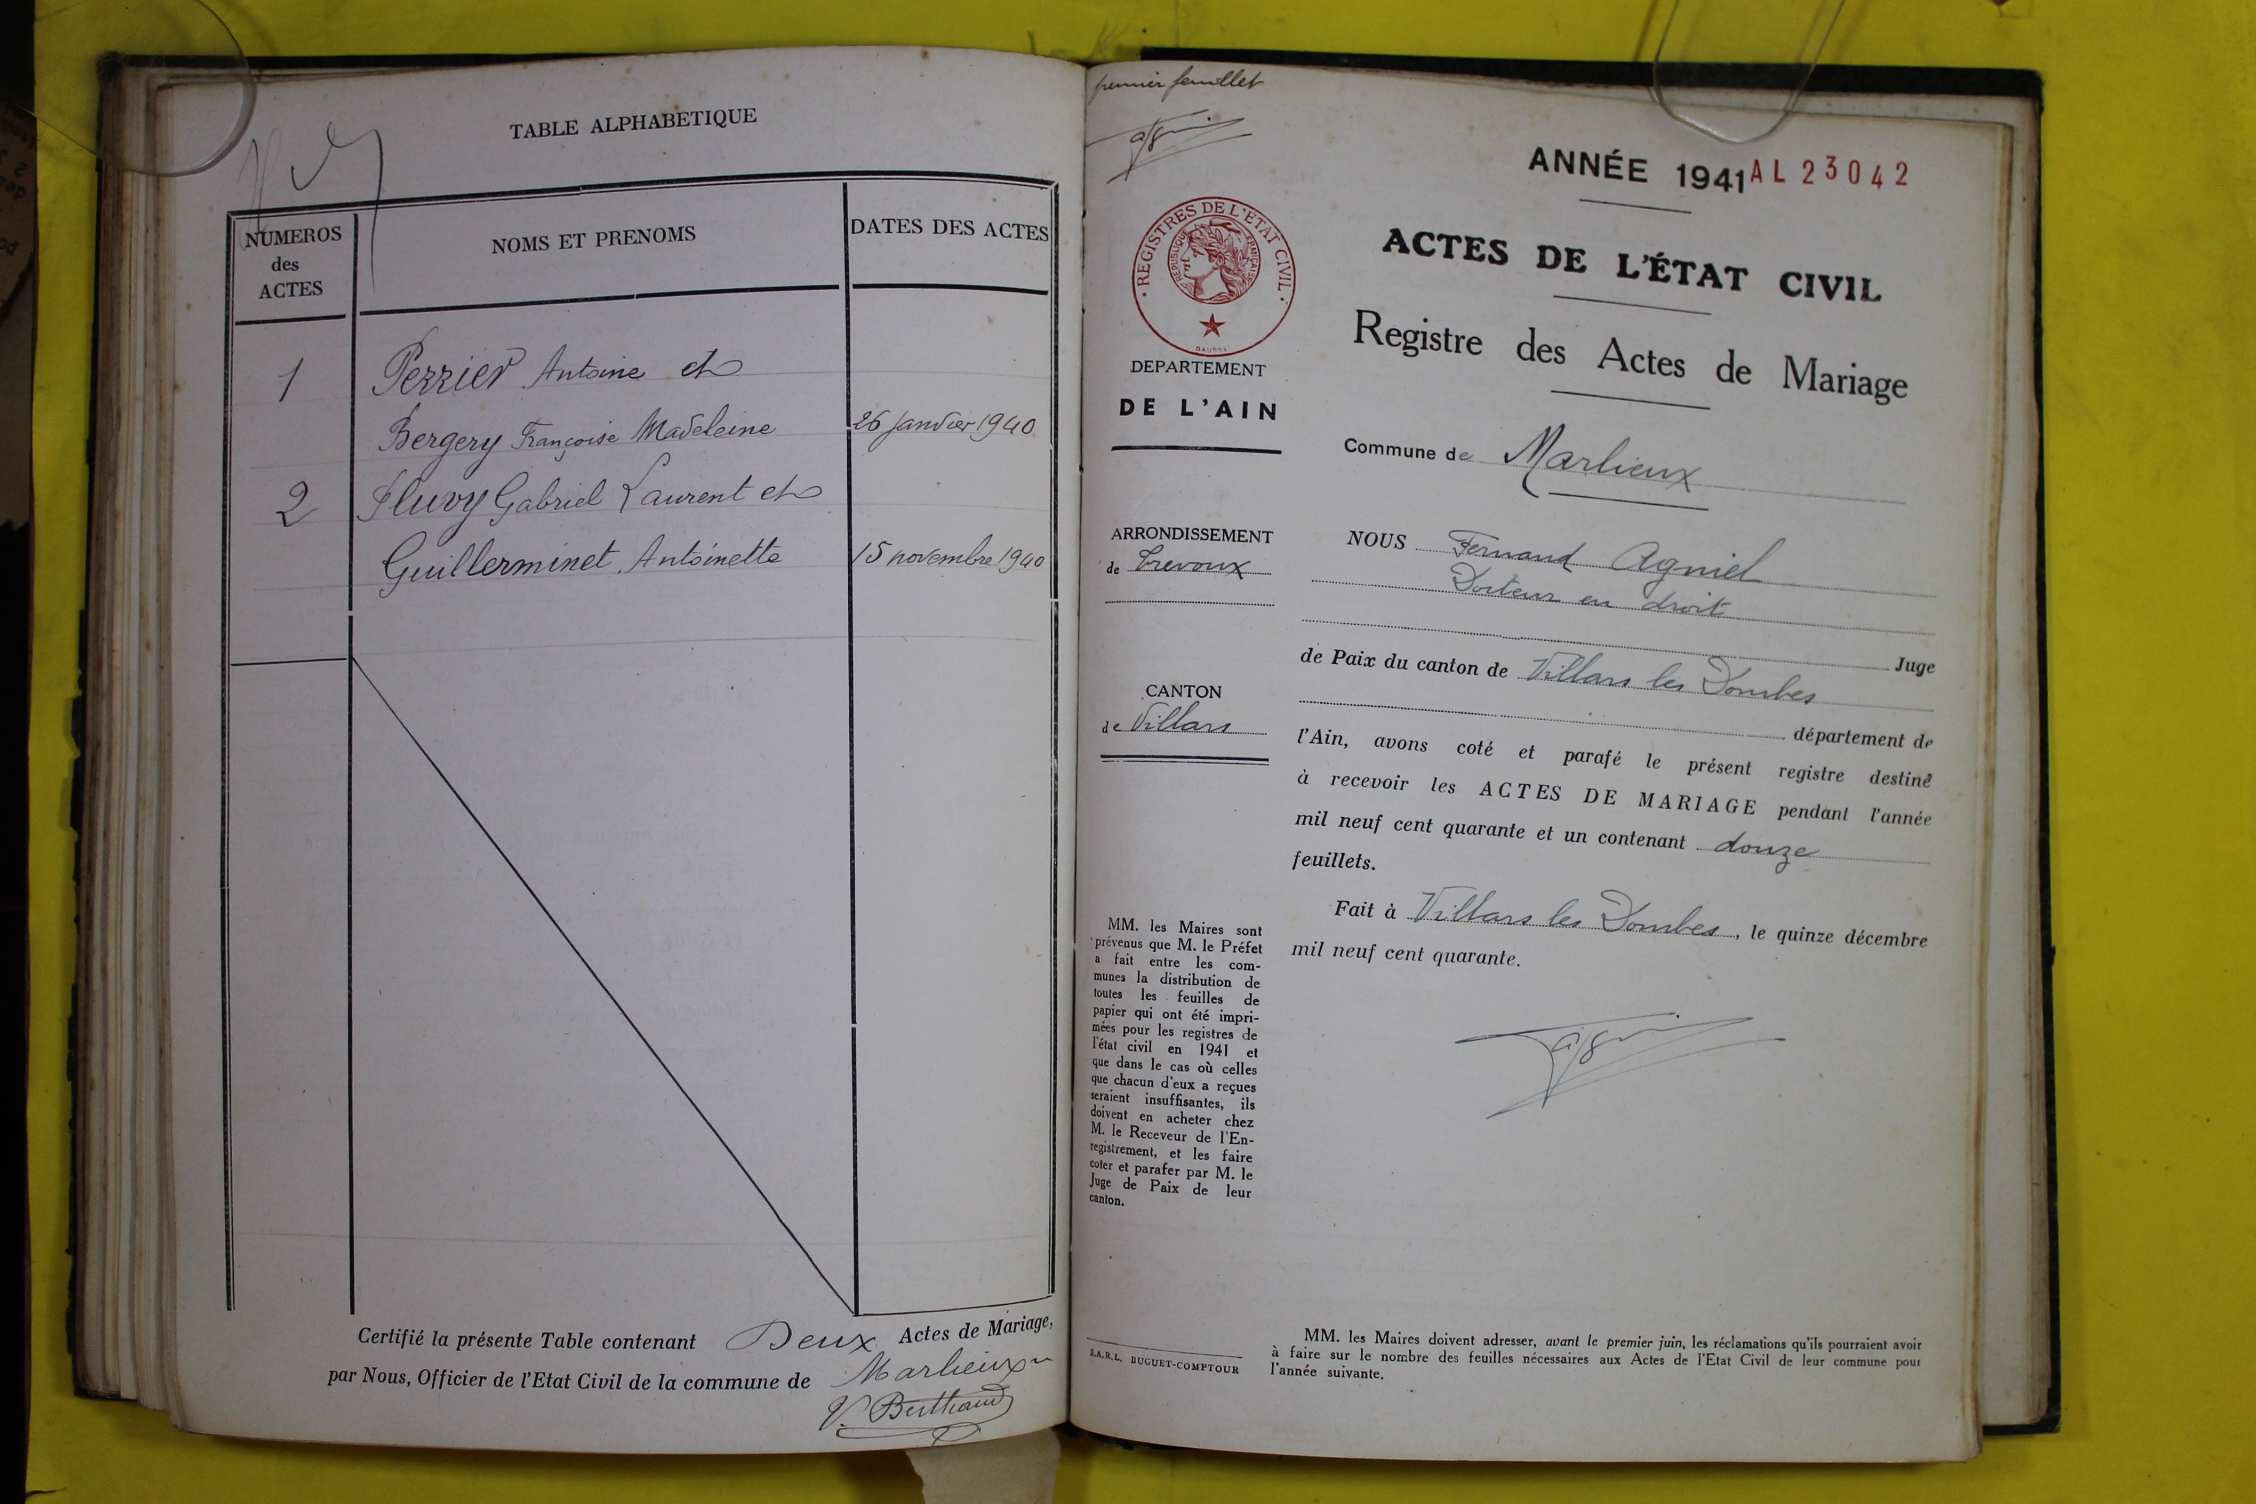 TABLE ALPHABETIQUE
NUMEROS
des
ACTES
NOMS ET PRENOMS
DATES DES ACTES
1
Perrier Antoine et
Bergery Françoise Madeleine
26 janvier 1940
2
Fluvy Gabriel Laurent et
Guillerminet Antoinette
15 novembre 1940
Certifié la présente Table contenant Deux Actes de Mariage,
par Nous, Officier de l'Etat Civil de la commune de Marlieux
V. Berthaud
premier feuillet
ANNÉE 1941 AL 23042
REGISTRES DE L'ETAT CIVIL
REPUBLIQUE FRANÇAISE
ACTES DE L'ÉTAT CIVIL
Registre des Actes de Mariage
DEPARTEMENT
DE L'AIN
Commune de Marlieux
ARRONDISSEMENT
de Trevoux
CANTON
de Villars
NOUS Fernand Agniel
Docteur en droit
Juge
de Paix du canton de Villars les Dombes
département de
l'Ain, avons coté et parafé le présent registre destiné
à recevoir les ACTES DE MARIAGE pendant l'année
mil neuf cent quarante et un contenant douze
feuillets.
Fait à Villars les Dombes, le quinze décembre
mil neuf cent quarante.
MM. les Maires sont
prévenus que M. le Préfet
a fait entre les com-
munes la distribution de
toutes les feuilles de
papier qui ont été impri-
mées pour les registres de
l'état civil en 1941 et
que dans le cas où celles
que chacun d'eux a reçues
seraient insuffisantes, ils
doivent en acheter chez
M. le Receveur de l'En-
registrement, et les faire
coter et parafer par M. le
Juge de Paix de leur
canton.
S.A.R.L. BUGUET-COMPTOUR
MM. les Maires doivent adresser, avant le premier juin, les réclamations qu'ils pourraient avoir
à faire sur le nombre des feuilles nécessaires aux Actes de l'Etat Civil de leur commune pour
l'année suivante.